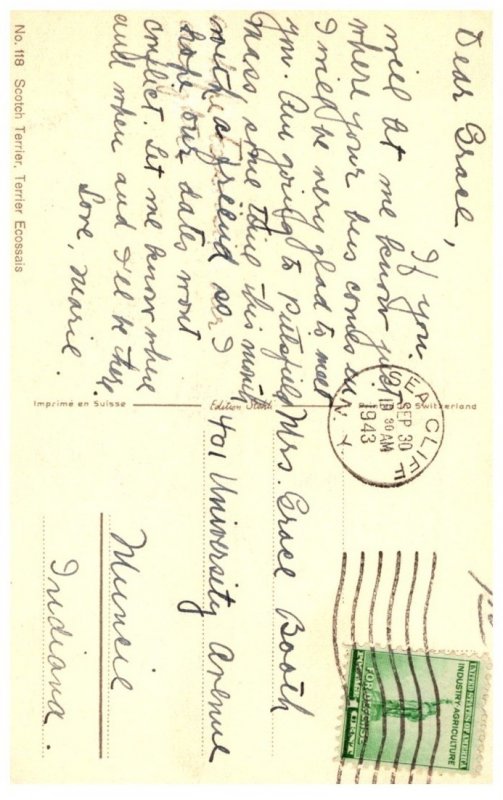 Dear Grace,
If you
will let me know just
where your bus comes in
I will be very glad to meet
you. Am going to Pittsfield
Mass some time this month
with a friend so I
hope our dates wont
conflict. Let me know where
and when and I'll be there.
Love, Marie.
No. 118 Scotch Terrier, Terrier Ecossais
Imprimé en Suisse
Edition Stehli
Printed in Switzerland
SEA CLIFF
SEP 30
1943
N.Y.
UNITED STATES OF AMERICA
INDUSTRY·AGRICULTURE
FOR DEFENSE
1
Mrs. Grace Booth
401 University Avenue
Muncie
Indiana.